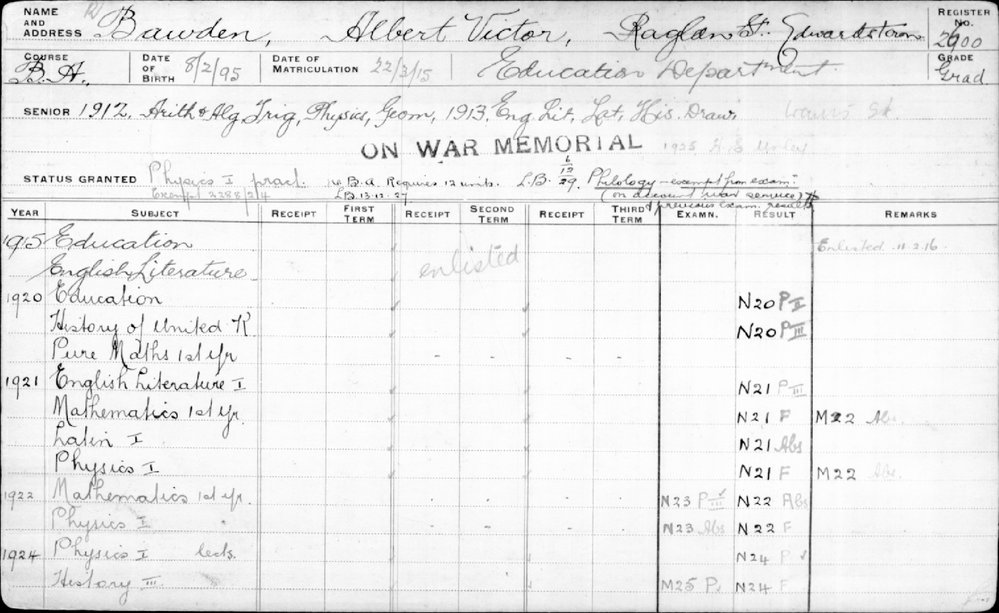 NAME AND ADDRESS Bawden, Albert Victor, Raglan St. Edwardstown REGISTER No. 2900
COURSE B.A. DATE OF BIRTH 8/2/95 DATE OF MATRICULATION 22/3/15 Education Department. GRADE Grad
SENIOR 1912. Arith & Alg Trig, Physics, Geom, 1913. Eng. Lit, Lat, His. Draw.
ON WAR MEMORIAL 1925
STATUS GRANTED Physics I pract. re B.A. Requires 12 units. L.B. 6/12/29. Philology - exempt from exam.
3288/24 L.B. 13.12.27 (on account war service) & previous exam. results
YEAR SUBJECT RECEIPT FIRST TERM RECEIPT SECOND TERM RECEIPT THIRD TERM EXAMN. RESULT REMARKS
1915 Education Enlisted 11.2.16.
English Literature enlisted
1920 Education N20 P II
History of United K N20 P III
Pure Maths 1st Yr
1921 English Literature I N21 P III
Mathematics 1st Yr. N21 F M22 Abs.
Latin I N21 Abs
Physics I N21 F M22 Abs.
1922 Mathematics 1st Yr. N23 P III N22 Abs
Physics I N23 Abs N22 F
1924 Physics I lects. N24 P
History III M25 P. N24 F